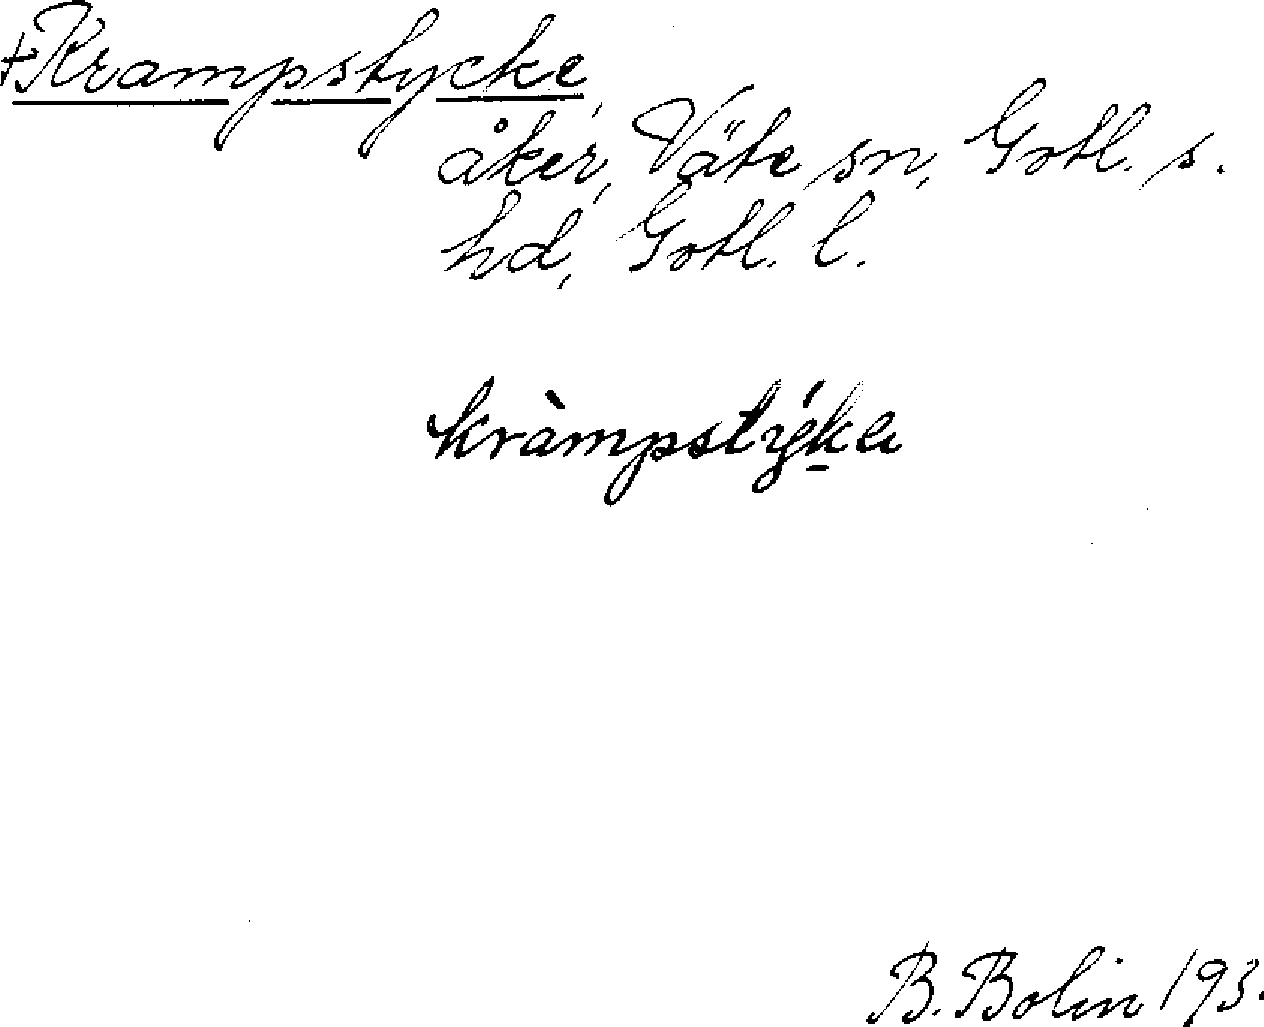 +Krampstycke,
åker, Väte sn, Gotl. s.
hd, Gotl. l.
kràmpstýka
B. Bolin 193.